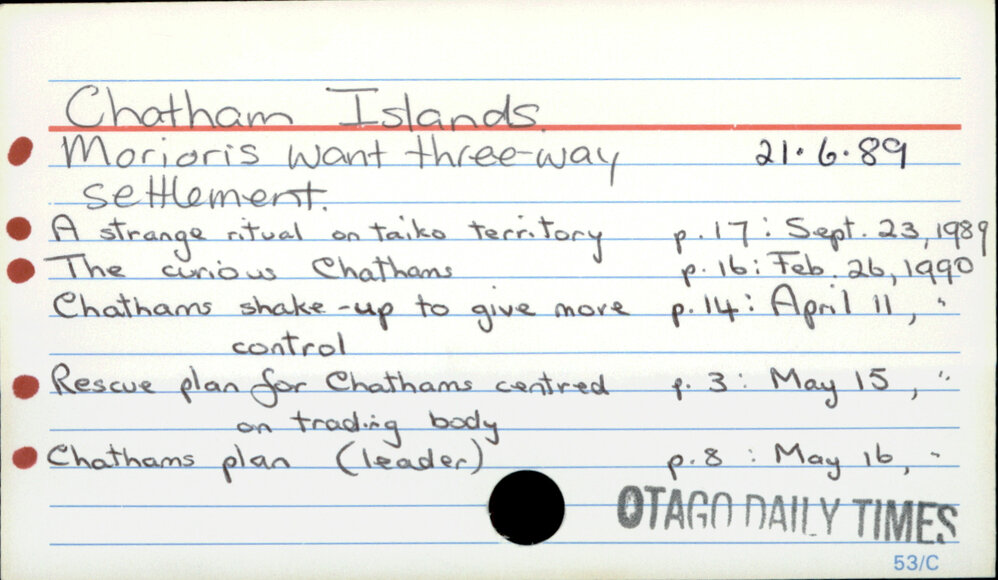 Chatham Islands.
Morioris want three-way 21.6.89
settlement.
A strange ritual on taiko territory p.17: Sept. 23, 1989
The curious Chathams p.16: Feb. 26, 1990
Chathams shake-up to give more p.14: April 11, "
control
Rescue plan for Chathams centred p.3: May 15, "
on trading body
Chathams plan (leader) p.8: May 16, "
OTAGO DAILY TIMES
53/C